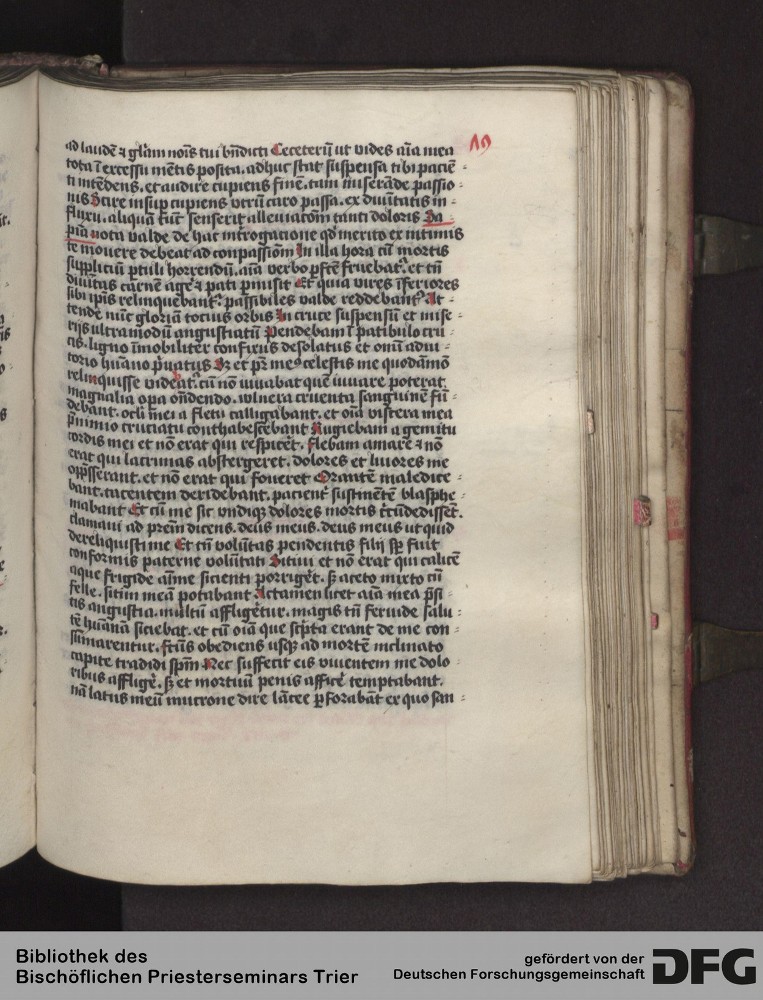 19
ad laudē ⁊ glām noīs tui bn̄dicti Ceceterū ut vides aīa mea
tota ī excessu mētis posita. adhuc stat suspensa tibi paciē-
ti intēdens. et audire cupiens finē. tam miserāde passio-
nis Scire insup cupiens vtrū caro passa. ex diuītatis in-
fluxu. aliquā tūc senserit alleuiacōm tanti doloris Sa-
pīa nota valde de hac int̄rogacione qd merito ex intimis
te mouere debeat ad conpassiom̄ In illa hora cū mortis
suppliciū ptuli horrendū. aīa verbo pfte fruebat. et tn̄
diuītas carnē agē ⁊ pati pmisit Et quia vires īferiores
sibi ipīs relinquebant. passibiles valde reddebant At-
tende nūc gloriā tocius orbis In cruce suspensū et mise-
rijs ultramodū angustiatū Pendebam ī patibulo cru-
cis. ligno īmobiliter confixus desolatus et om̄i adiu-
torio hūano p̄uatus Sz et pr̄ meꝰ celestis me quodāmō
relinquisse videat. cū nō iuuabat quē iuuare poterat.
magnalia opa on̄dendo. wlnera cruenta sanguinē fū-
debant. ocli mei a fletu calligabant. et oīa viscera mea
p̄nimio cruciatu conthabescebant Rugiebam a gemitu
cordis mei et nō erat qui respicēt. Flebam amare ⁊ nō
erat qui lacrimas abstergeret. dolores et liuores me
opp̄sserant. et nō erat qui foueret Orantē maledice-
bant. tacentem deridebant. pacient sustinētē blasphe-
mabant Et cū me sic vndiqꝫ dolores mortis c̄cūdedissēt.
clamaui ad prēm dicens. deus meus. deus meus ut quid
dereliquisti me Et tn̄ volūtas pendentis filij sp̄ fuit
conformis paterne volūtati Sitiui et nō erat qui calicē
aque frigide aīme sicienti porrigēt. sz aceto mixto cū
felle. sitim meā potabant Actamen licet aīa mea p̄si-
tis angustia. multū affligētur. magis tn̄ feruide salu-
tē hūanā siciebat. et cū oīa que sc̄pta erant de me con-
sūmarentur. ftūs obediens usqꝫ ad mortē inclinato
capite tradidi spm̄ Nec suffecit eis viuentem me dolo-
ribus affligē. sz et mortiuū penis afficē temptabant.
nā latus meū mucrone dire lācee pforabāt ex quo san-
Bibliothek des
Bischöflichen Priesterseminars Trier
gefördert von der
Deutschen Forschungsgemeinschaft
DFG